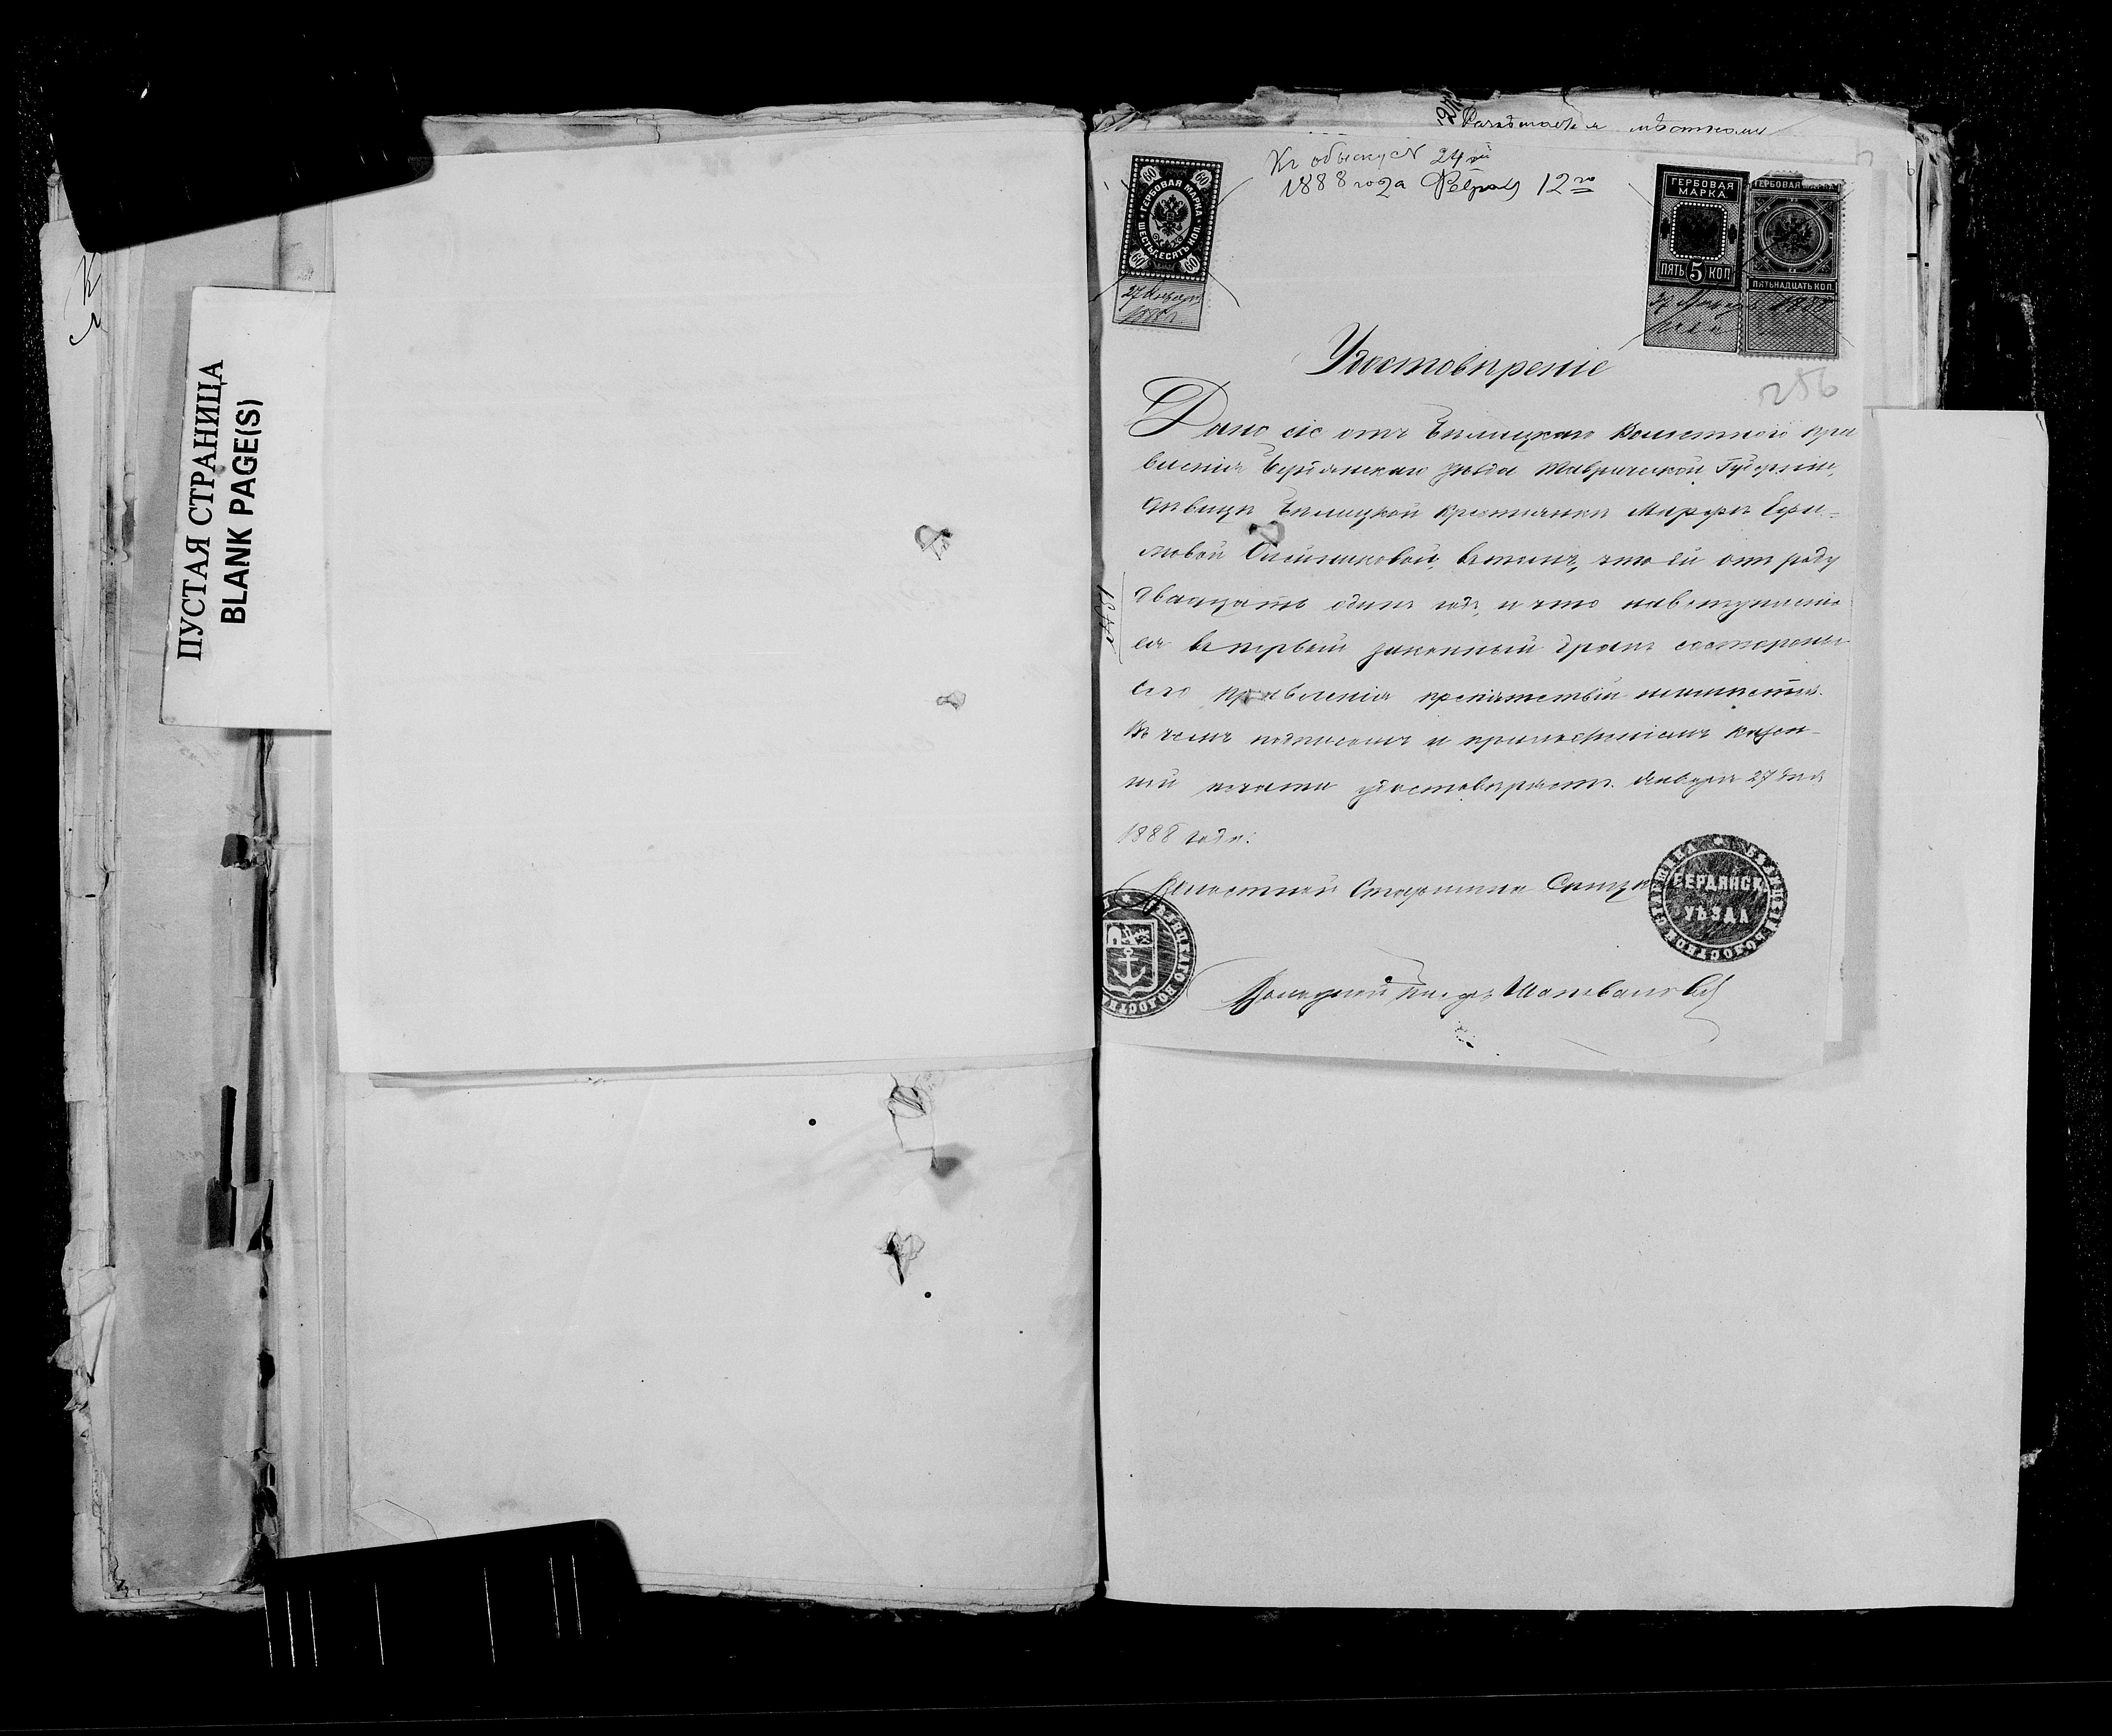 ПУСТАЯ СТРАНИЦА
BLANK PAGE(S)
Къ обыску № 24й
1888 года Февраля 12го
ГЕРБОВАЯ МАРКА
ШЕСТЬДЕСЯТЪ КОП.
60 60
60 60
27 Января
1888 г.
ГЕРБОВАЯ
МАРКА
ПЯТЬ 5 КОП
ГЕРБОВАЯ МАРКА
ПЯТЬНАДЦАТЬ КОП.
1888
256
Удостовѣреніе
Дано сіе отъ Бѣлицкаго Волостного Пра
вленія Бердянскаго уѣзда Таврической Губерніи,
дѣвицѣ Бѣлицкой крестьянкѣ Марфѣ Ефи-
мовой Олейниковой, въ томъ, что ей отъ роду
двадцать одинъ годъ, и что на вступленіе
ея въ первый законный бракъ со стороны
сего правленія препятствій не имѣется.
Въ чемъ подписомъ и приложеніемъ казен-
ной печати удостовѣряетъ. Января 27 дня
1888 года.
Волостной Старшина
БЕРДЯНСК
УѢЗДА
Волостной Писарь Шаповаловъ